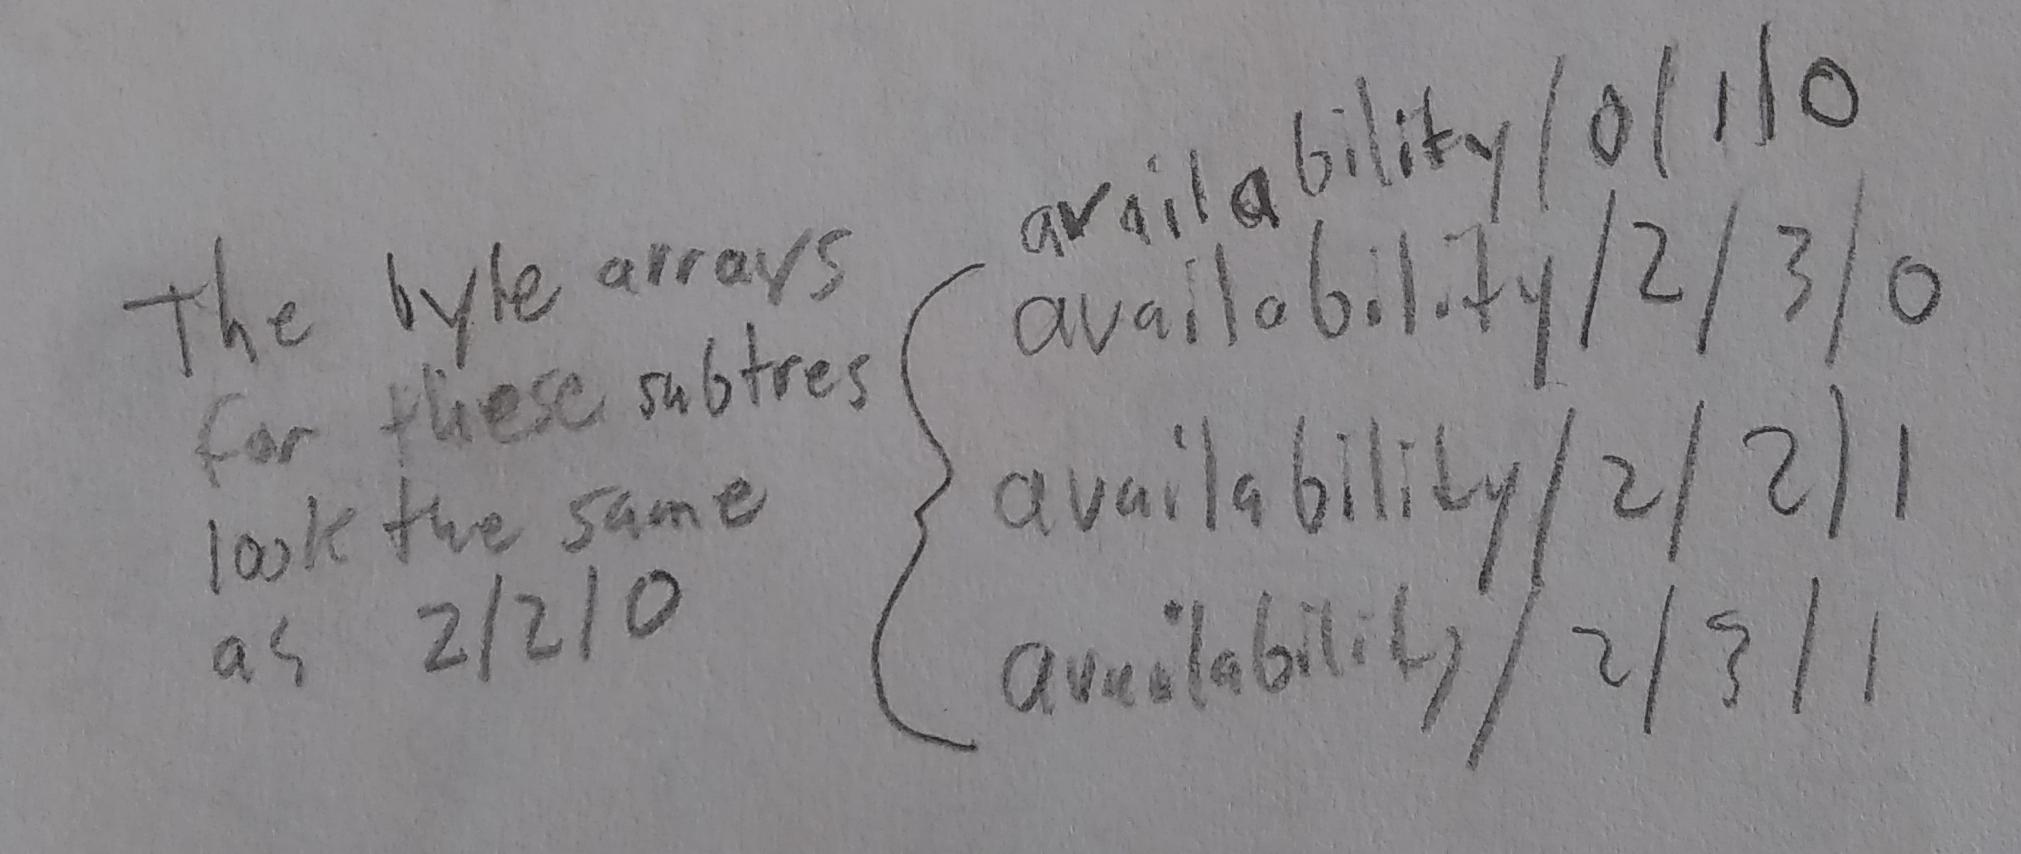 The byte arrays
for these subtres
look the same
as 2/2/0
availability/0/1/0
availability/2/3/0
availability/2/2/1
availability/2/3/1